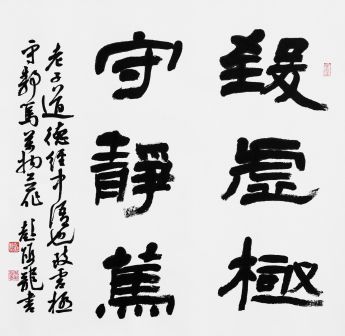 致虛極
守靜篤
老子道德經中語也致虛極
守靜篤萬物並作 龍書